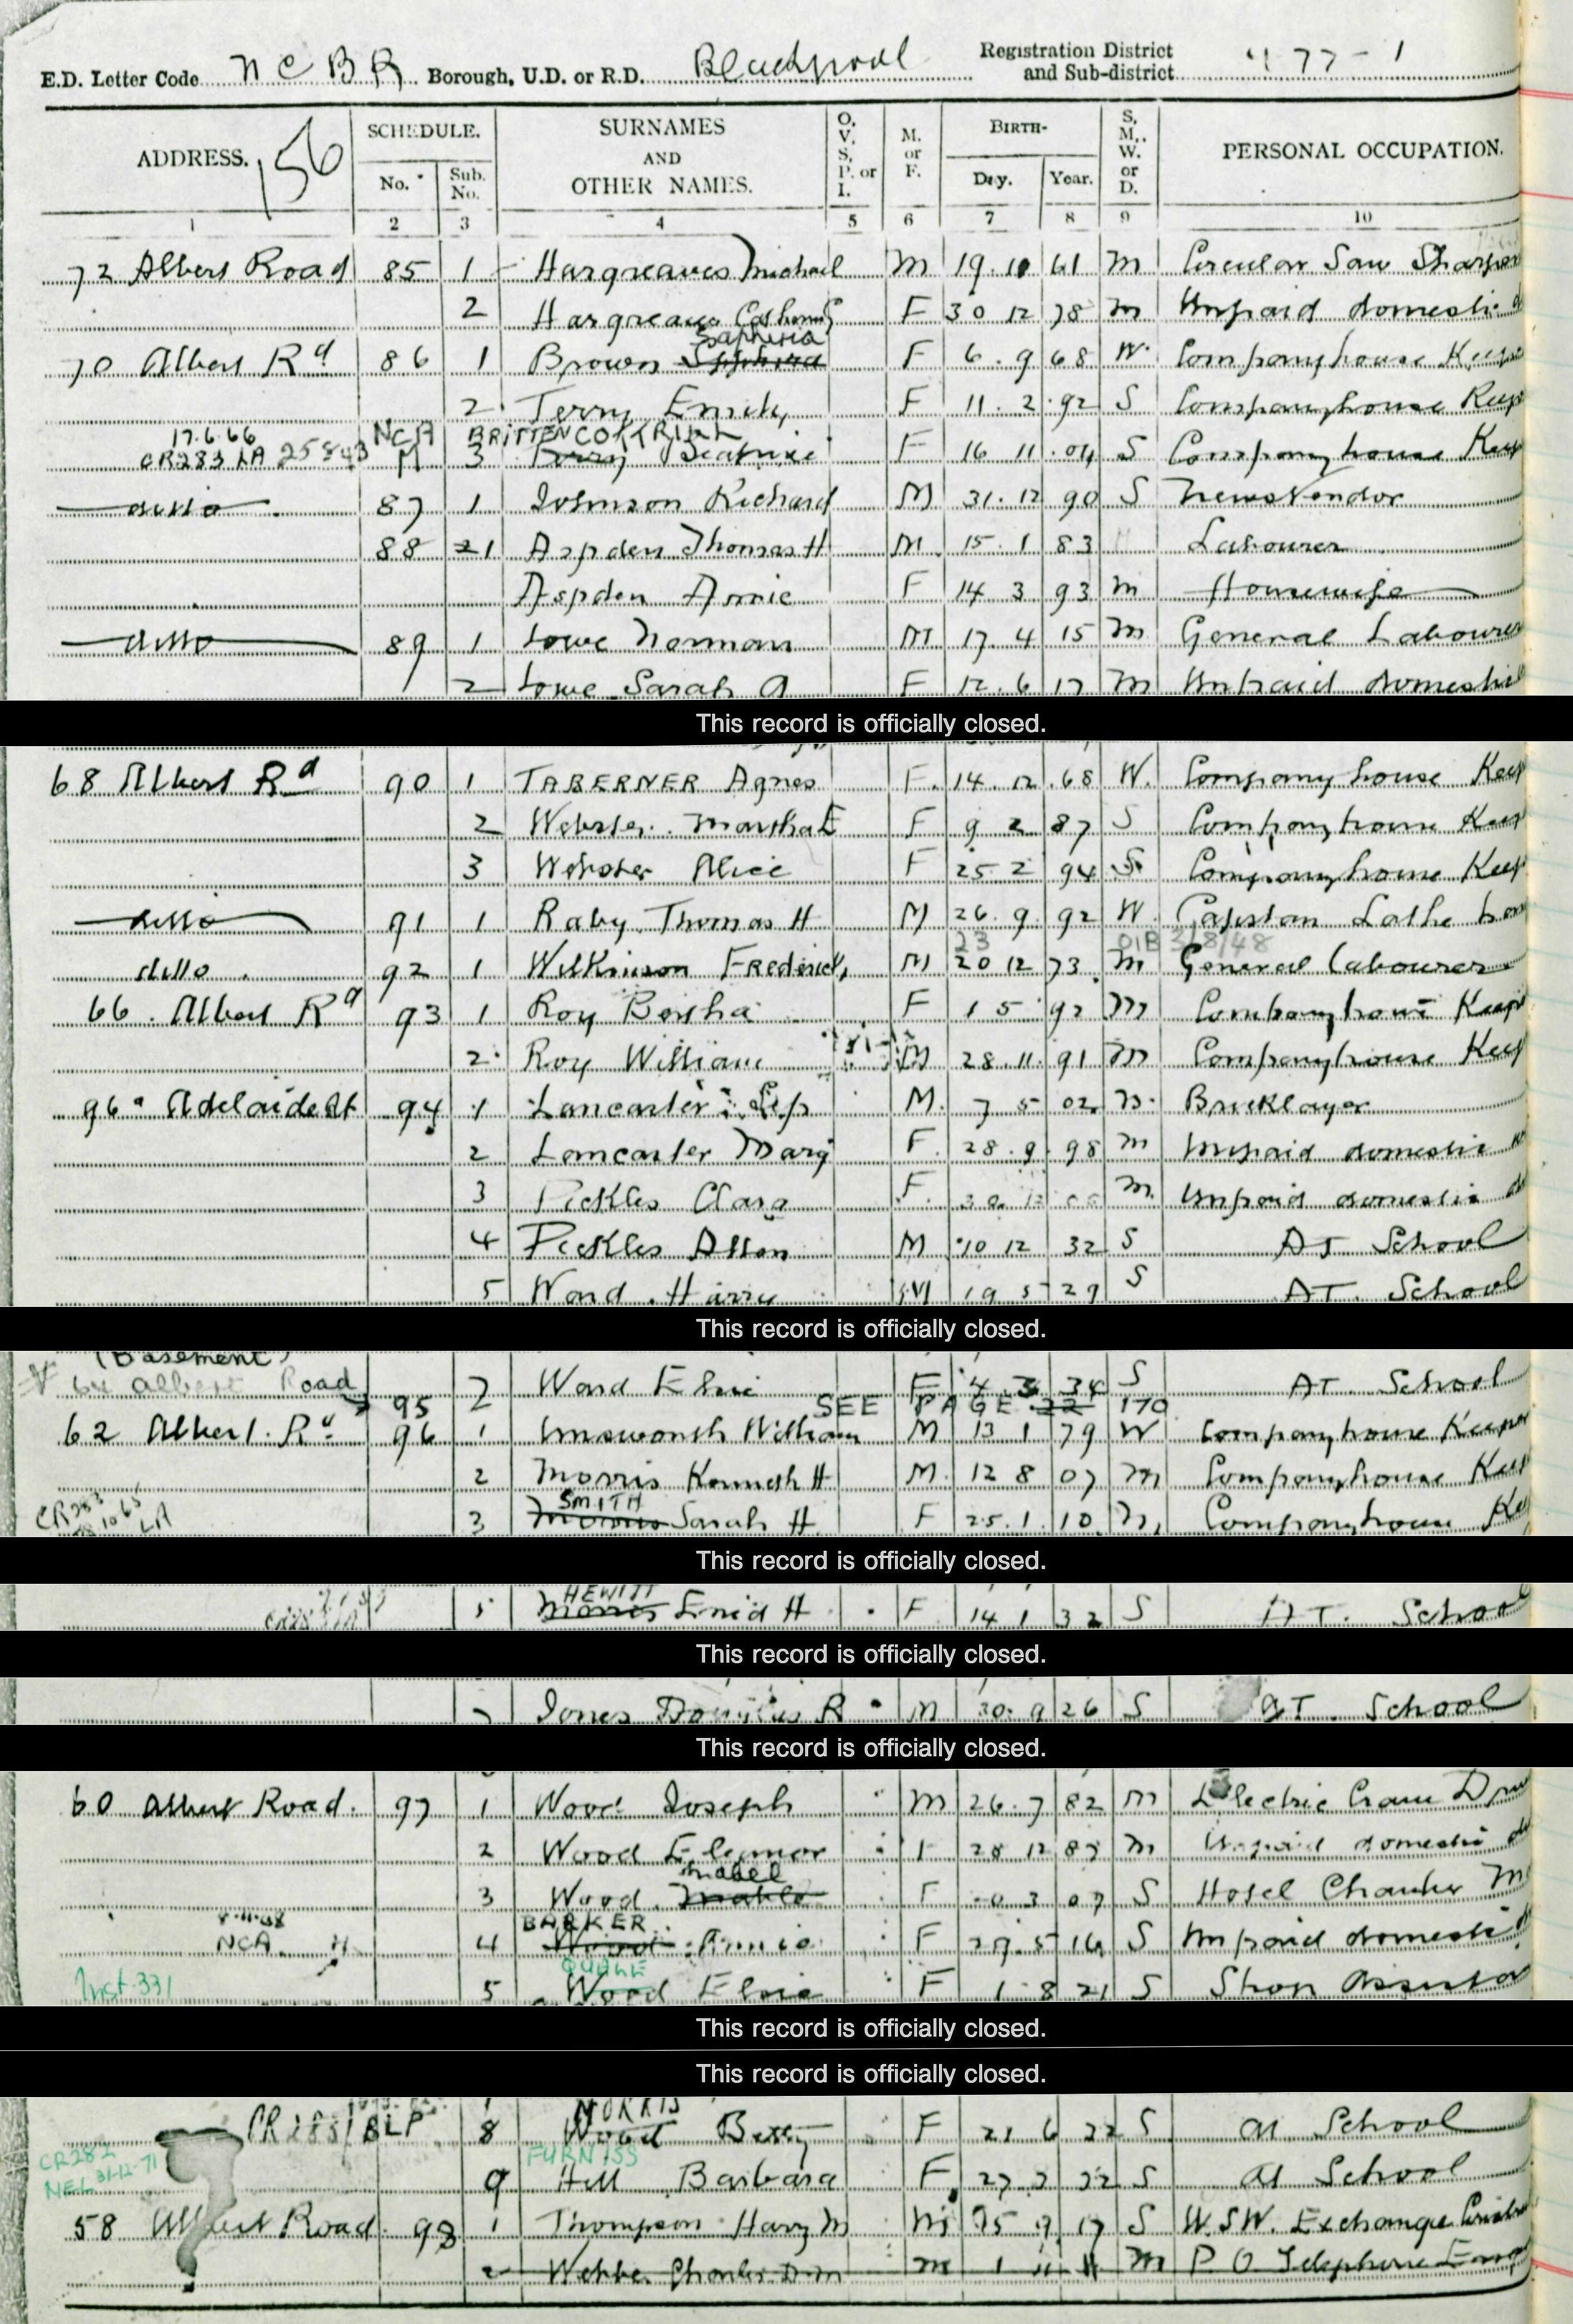 E.D. Letter Code N C B R Borough, U.D. or R.D. Blackpool Registration District and Sub-district 477-1
ADDRESS. 156 SCHEDULE. No. Sub. No. SURNAMES AND OTHER NAMES. O. V. S. P. or I. M. or F. BIRTH- Day. Year. S. M. W. or D. PERSONAL OCCUPATION.
1 2 3 4 5 6 7 8 9 10
72 Albert Road 85 1 Hargreaves Michael M 19 10 61 M Circular Saw Sharpen
2 Hargreaves F 30 12 78 M Unpaid domestic
Saphira
70 Albert Rd 86 1 Brown F 6 9 68 W Companyhouse Keepe
2 Terry Emily F 11 2 92 S Companyhouse Keep
17.6.66 NCA BRITTEN COTTRILL
CR283 LA 25843 M 3 Terry Beatrice F 16 11 04 S Companyhouse Keep
ditto 87 1 Johnson Richard M 31 12 90 S News Vendor
88 2 1 Aspden Thomas H M 15 1 83 Labourer
Aspden Annie F 14 3 93 M Housewife
ditto 89 1 Lowe Norman M 17 4 15 M General Labourer
2 Lowe Sarah A F 12 6 17 M Unpaid domestic
This record is officially closed.
68 Albert Rd 90 1 TABERNER Agnes F 14 12 68 W Companyhouse Keep
2 Webster Martha E F 9 2 87 S Companyhouse Keep
3 Webster Alice F 25 2 94 S Companyhouse Keep
ditto 91 1 Raby Thomas H M 26 9 92 W Capstan Lathe
23 3/8/48
ditto 92 1 Wilkinson Frederick M 20 12 73 M General Labourer
66 Albert Rd 93 1 Roy Bertha F 1 5 92 M Companyhouse Keep
2 Roy William M 28 11 91 M Companyhouse Keep
96a Adelaide St 94 1 Lancaster M 7 5 02 M Bricklayer
2 Lancaster Mary F 28 9 98 M Unpaid domestic
3 Pickles Clara F M Unpaid domestic
4 Pickles Allan M 10 12 32 S At School
5 Ward Harry M 19 5 29 S AT School
This record is officially closed.
(Basement)
64 Albert Road 7 Ward Elsie F 4 3 34 S AT School
95 SEE PAGE 22 170
62 Albert Rd 96 1 Unsworth William M 13 1 79 W Companyhouse Keeper
2 Morris Kenneth H M 12 8 07 M Companyhouse Keep
SMITH
CR283 LA 3 Morris Sarah H F 25 1 10 M Companyhouse Ke
This record is officially closed.
HEWITT
5 Morris Enid H F 14 1 32 S AT School
This record is officially closed.
7 Jones Douglas R M 30 9 26 S AT School
This record is officially closed.
60 Albert Road 97 1 Wood Joseph M 26 7 82 M Electric Crane Driv
2 Wood Eleanor F 28 12 M Unpaid domestic
Mabel
3 Wood F 3 07 S Hotel Chamber M
BARKER
NCA 4 Wood Annie F 29 5 16 S Unpaid domestic
QUALE
Inst 331 5 Wood Elsie F 1 8 21 S Shop Assista
This record is officially closed.
This record is officially closed.
NORRIS
CR283/BLP 8 Wood Betty F 21 6 22 S At School
CR282 FURNISS
NEL 31-12-71 9 Hill Barbara F 27 32 S At School
58 Albert Road 98 1 Thompson Harry M M 17 S W. Exchange
2 Webber Charles M 1 11 M P O Telephone Eng